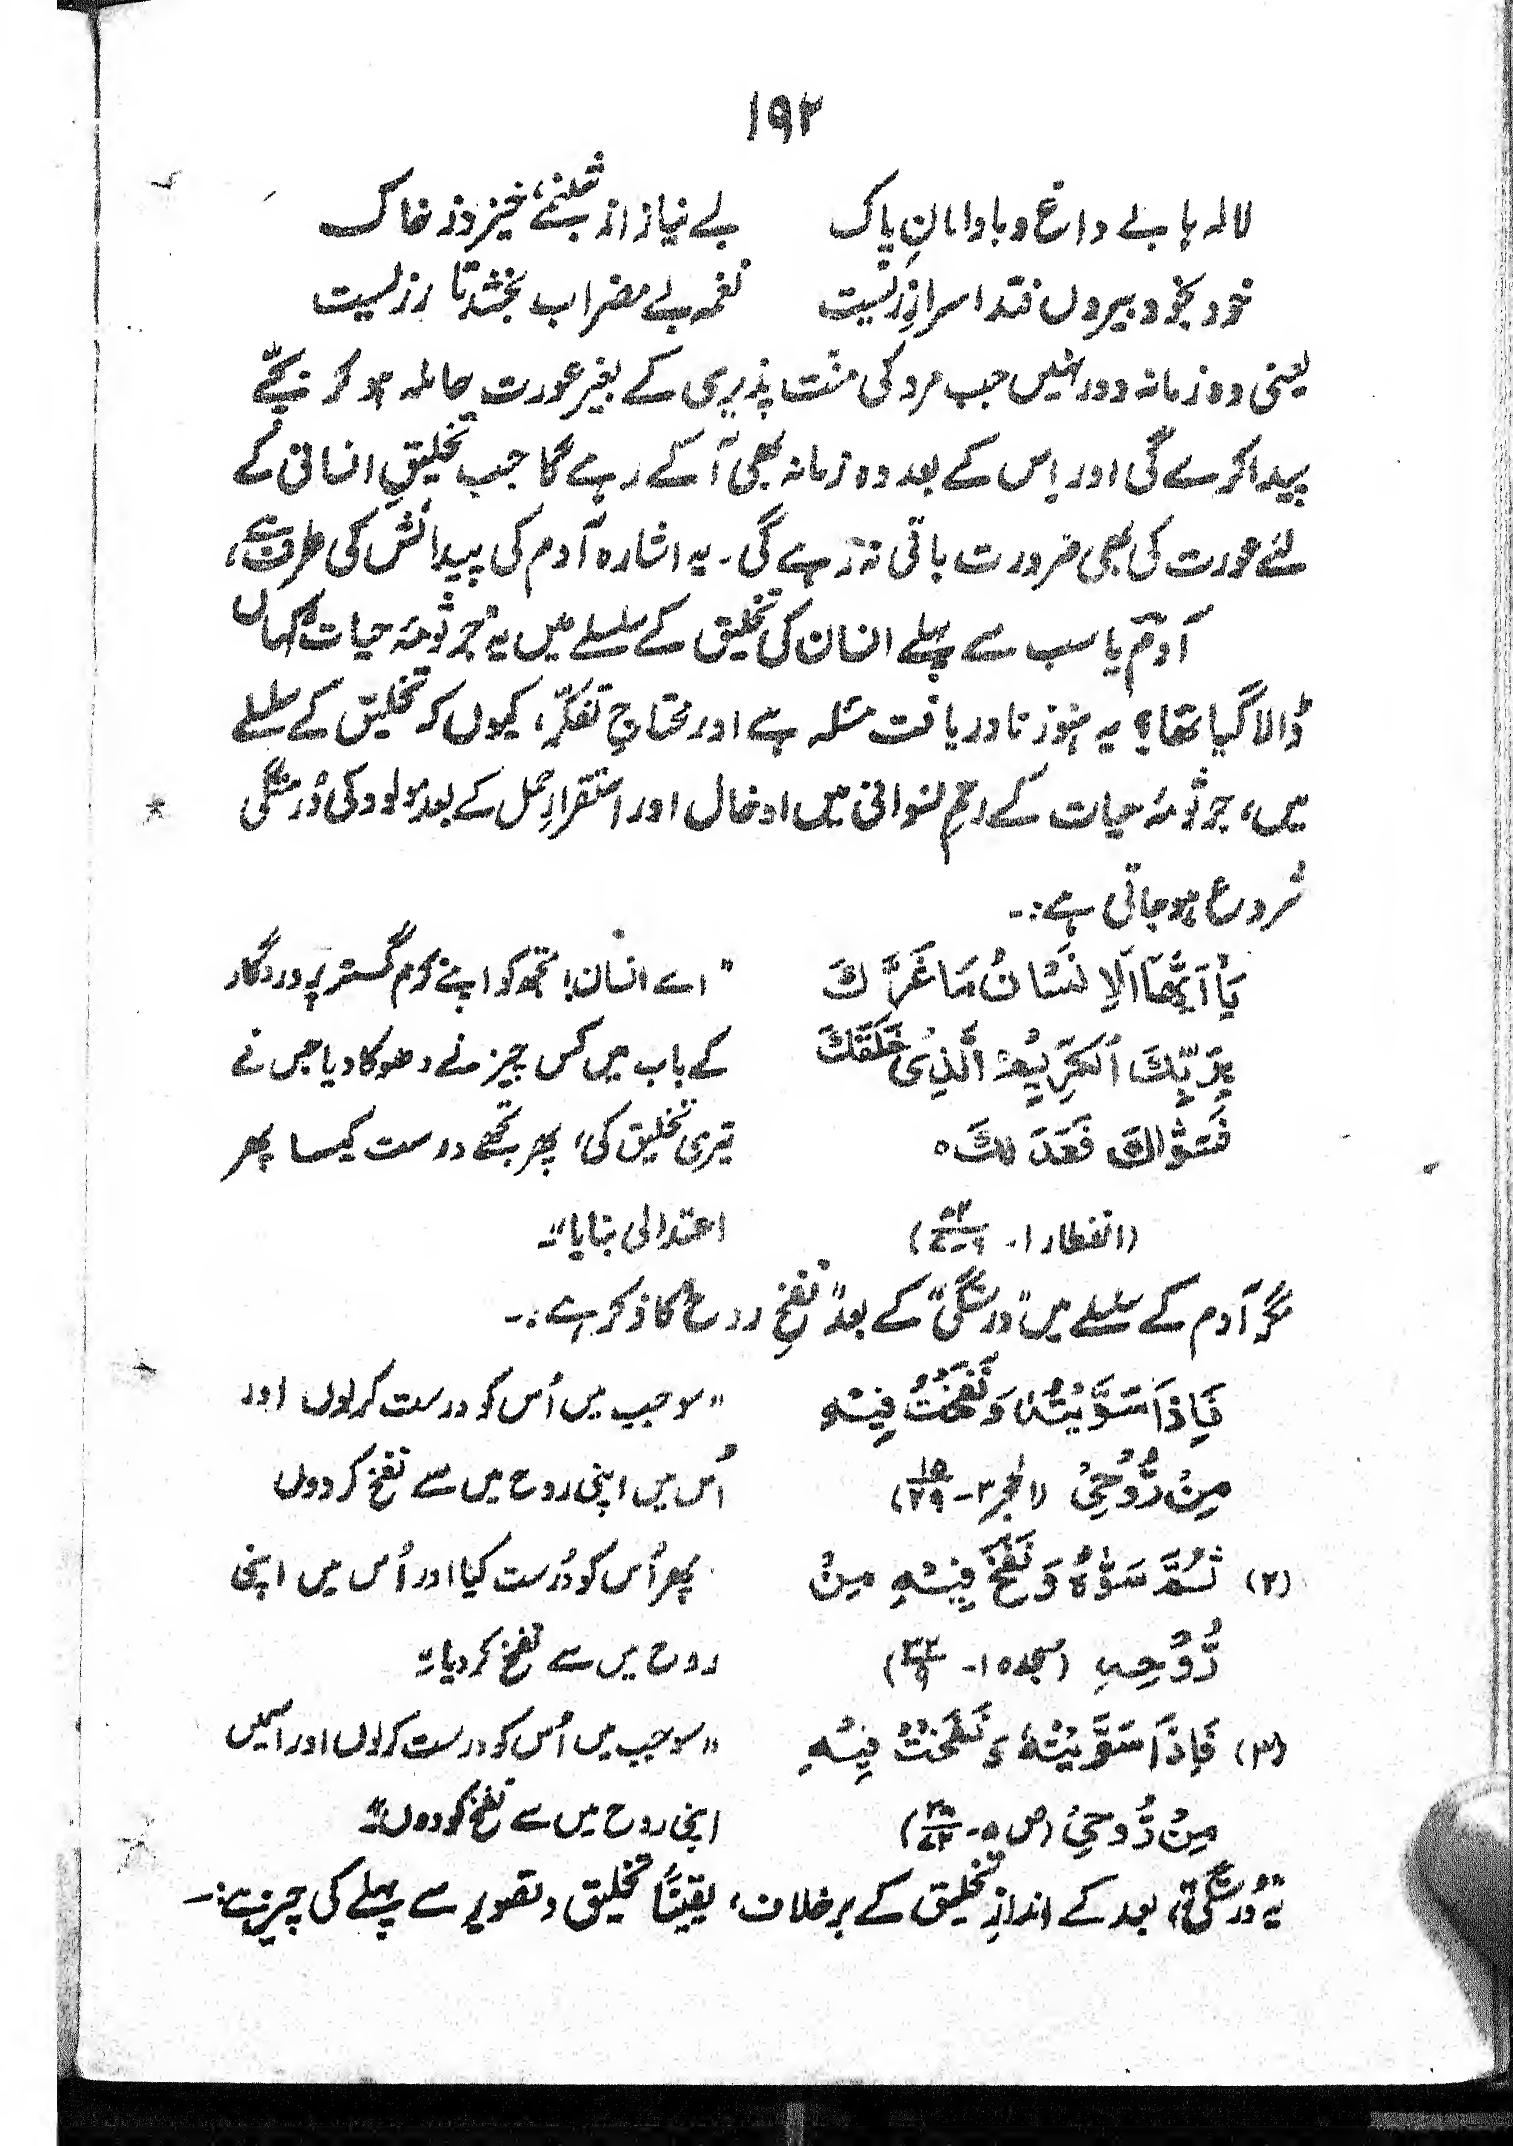 ۱۹۲
لالہ ہا بے داغ و با دامانِ پاک بے نیاز از شبنمے، خیزد ز خاک
خود بخود بیروں فتد اسرارِ زیست نغمہ بے مضراب بخشد تارِ زیست
یعنی وہ زمانہ دور نہیں جب مرد کی منت پذیری کے بغیر عورت حاملہ ہو کر بچے
پیدا کرے گی اور اِس کے بعد وہ زمانہ بھی آکے رہے گا جب تخلیقِ انسانی کے
لئے عورت کی بھی ضرورت باقی نہ رہے گی۔ یہ اشارہ آدم کی پیدائش کی طرف ہے،
آدمؑ یا سب سے پہلے انسان کی تخلیق کے سلسلے میں یہ "جرثومۂ حیات" کہاں
ڈالا گیا تھا؟ یہ ہنوز نادریافت مسئلہ ہے اور محتاجِ تفکّر، کیوں کہ تخلیق کے سلسلے
میں، جرثومۂ حیات کے رحمِ نسوانی میں ادخال اور استقرارِ حمل کے بعد مولود کی دُرستگی
شروع ہو جاتی ہے:۔
یٰۤاَیُّهَا الْاِنْسَانُ مَا غَرَّكَ "اے انسان! تجھ کو اپنے کرم گستر پروردگار
بِرَبِّكَ الْكَرِیْمِ الَّذِیْ خَلَقَكَ کے باب میں کس چیز نے دھوکا دیا جس نے
فَسَوّٰىكَ فَعَدَلَكَ ه تیری تخلیق کی، پھر تجھے درست کیا پھر
(انفطار ۱۔ ۸۲/۶-۷) اعتدالی بنایا"۔
مگر آدم کے سلسلے میں "درستگی" کے بعد "نفخِ روح" کا ذکر ہے:۔
فَاِذَا سَوَّیْتُهٗ وَ نَفَخْتُ فِیْهِ "سو جب میں اُس کو درست کرلوں اور
مِنْ رُّوْحِیْ (الحجر ۳۔ ۱۵/۲۹) اُس میں اپنی روح میں سے نفخ کر دوں
(۲) ثُمَّ سَوّٰىهُ وَ نَفَخَ فِیْهِ مِنْ پھر اُس کو دُرست کیا اور اُس میں اپنی
رُّوْحِهٖ (سجدہ ۱۔ ۳۲/۹) روح میں سے نفخ کر دیا"۔
(۳) فَاِذَا سَوَّیْتُهٗ وَ نَفَخْتُ فِیْهِ "سو جب میں اُس کو درست کرلوں اور اسمیں
مِنْ رُّوْحِیْ (ص ۵۔ ۳۸/۷۲) اپنی روح میں سے نفخ کردوں"۔
یہ "دُرستگی"، بعد کے اندازِ تخلیق کے برخلاف، یقیناً تخلیق و تصویر سے پہلے کی چیز ہے:۔